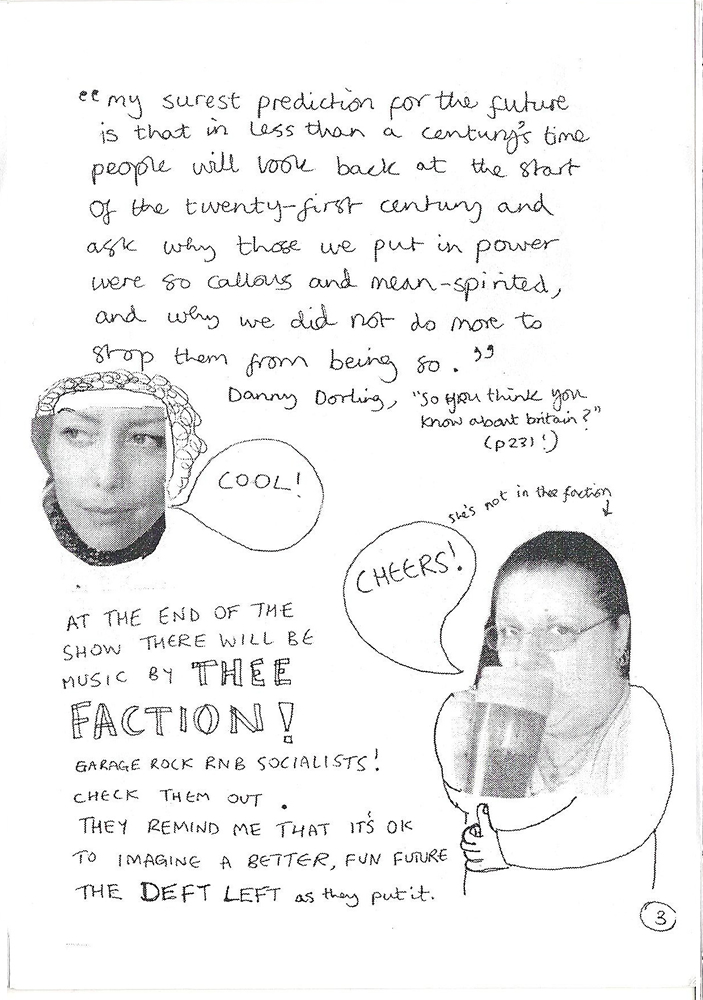 “my surest prediction for the future
is that in less than a century's time
people will look back at the start
of the twenty-first century and
ask why those we put in power
were so callous and mean-spirited,
and why we did not do more to
stop them from being so.”
Danny Dorling, "So you think you
know about britain?"
(p231!)
COOL!
she's not in thee faction
CHEERS!
AT THE END OF THE
SHOW THERE WILL BE
MUSIC BY THEE
FACTION!
GARAGE ROCK RNB SOCIALISTS!
CHECK THEM OUT.
THEY REMIND ME THAT IT'S OK
TO IMAGINE A BETTER, FUN FUTURE
THE DEFT LEFT as they put it.
3